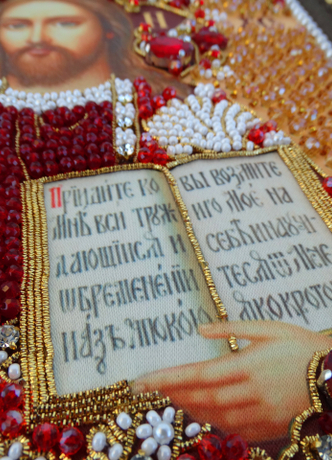 Прїидите ко
мнѣ вси трꙋж
дающїися и
ѡбремененїи
и азъ ꙋпокою
вы возмите
иго мое на
себѣ и наꙋчи
теся ѿ мене
яко крото